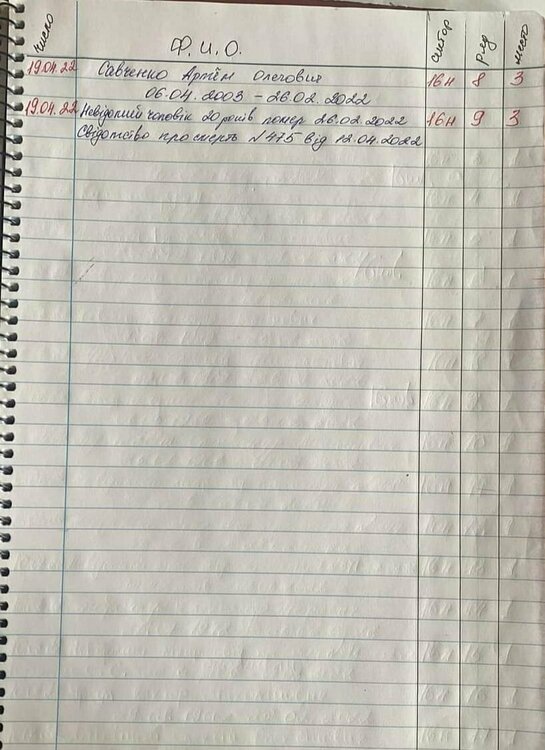 число Ф.И.О. сектор ряд место
19.04.22 Савченко Артём Олегович 16н 8 3
06.04.2003 - 26.02.2022
19.04.22 Невідомий чоловік 20 років помер 26.02.2022 16н 9 3
Свідотство про смерть N475 від 12.04.2022